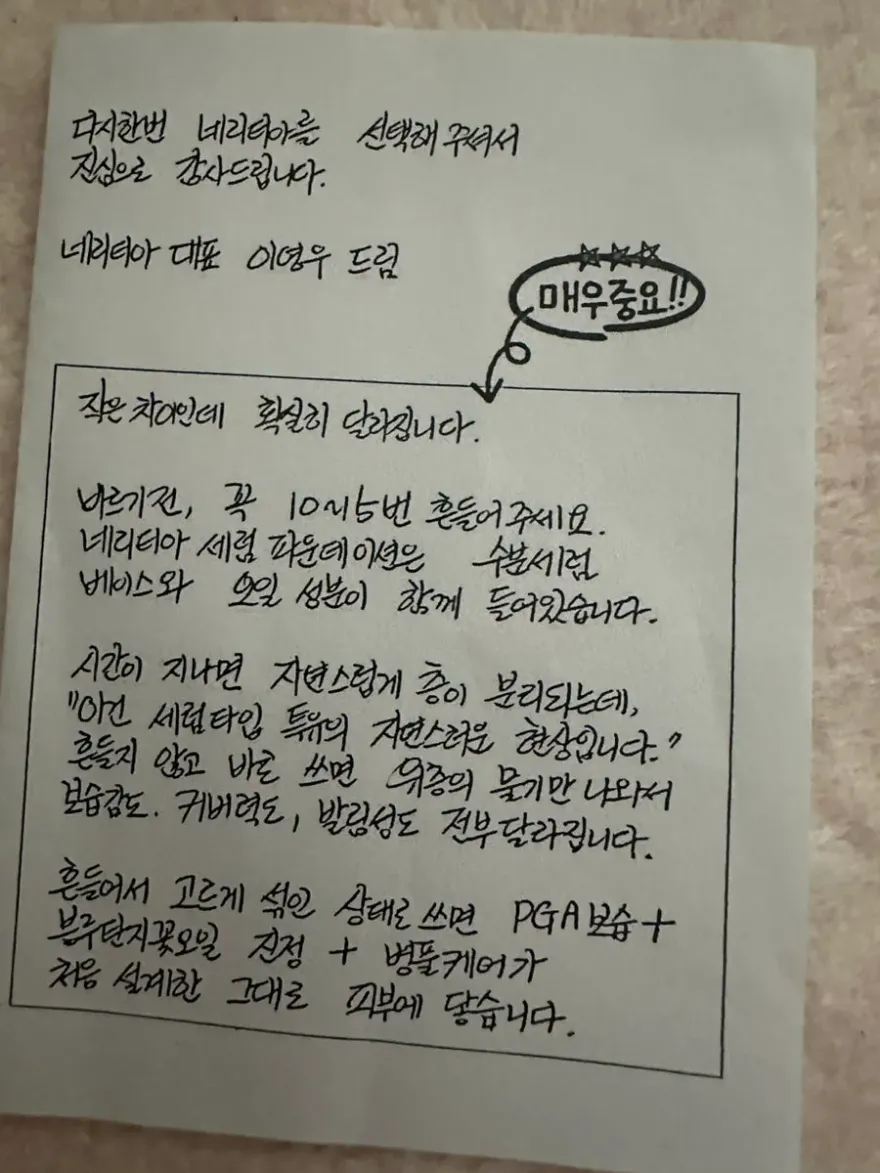 다시한번 네리티아를 선택해 주셔서
진심으로 감사드립니다.
네리티아 대표 이영우 드림
매우중요!!
작은 차이인데 확실히 달라집니다.
바르기전, 꼭 10~15번 흔들어주세요.
네리티아 세럼 파운데이션은 수분세럼
베이스와 오일 성분이 함께 들어있습니다.
시간이 지나면 자연스럽게 층이 분리되는데,
"이건 세럼타입 특유의 자연스러운 현상입니다."
흔들지 않고 바로 쓰면 위층의 물기만 나와서
보습감도. 커버력도, 발림성도 전부달라집니다.
흔들어서 고르게 섞인 상태로 쓰면 PGA보습+
봉주단지꽃오일 진정 + 병풀케어가
처음 설계한 그대로 피부에 닿습니다.